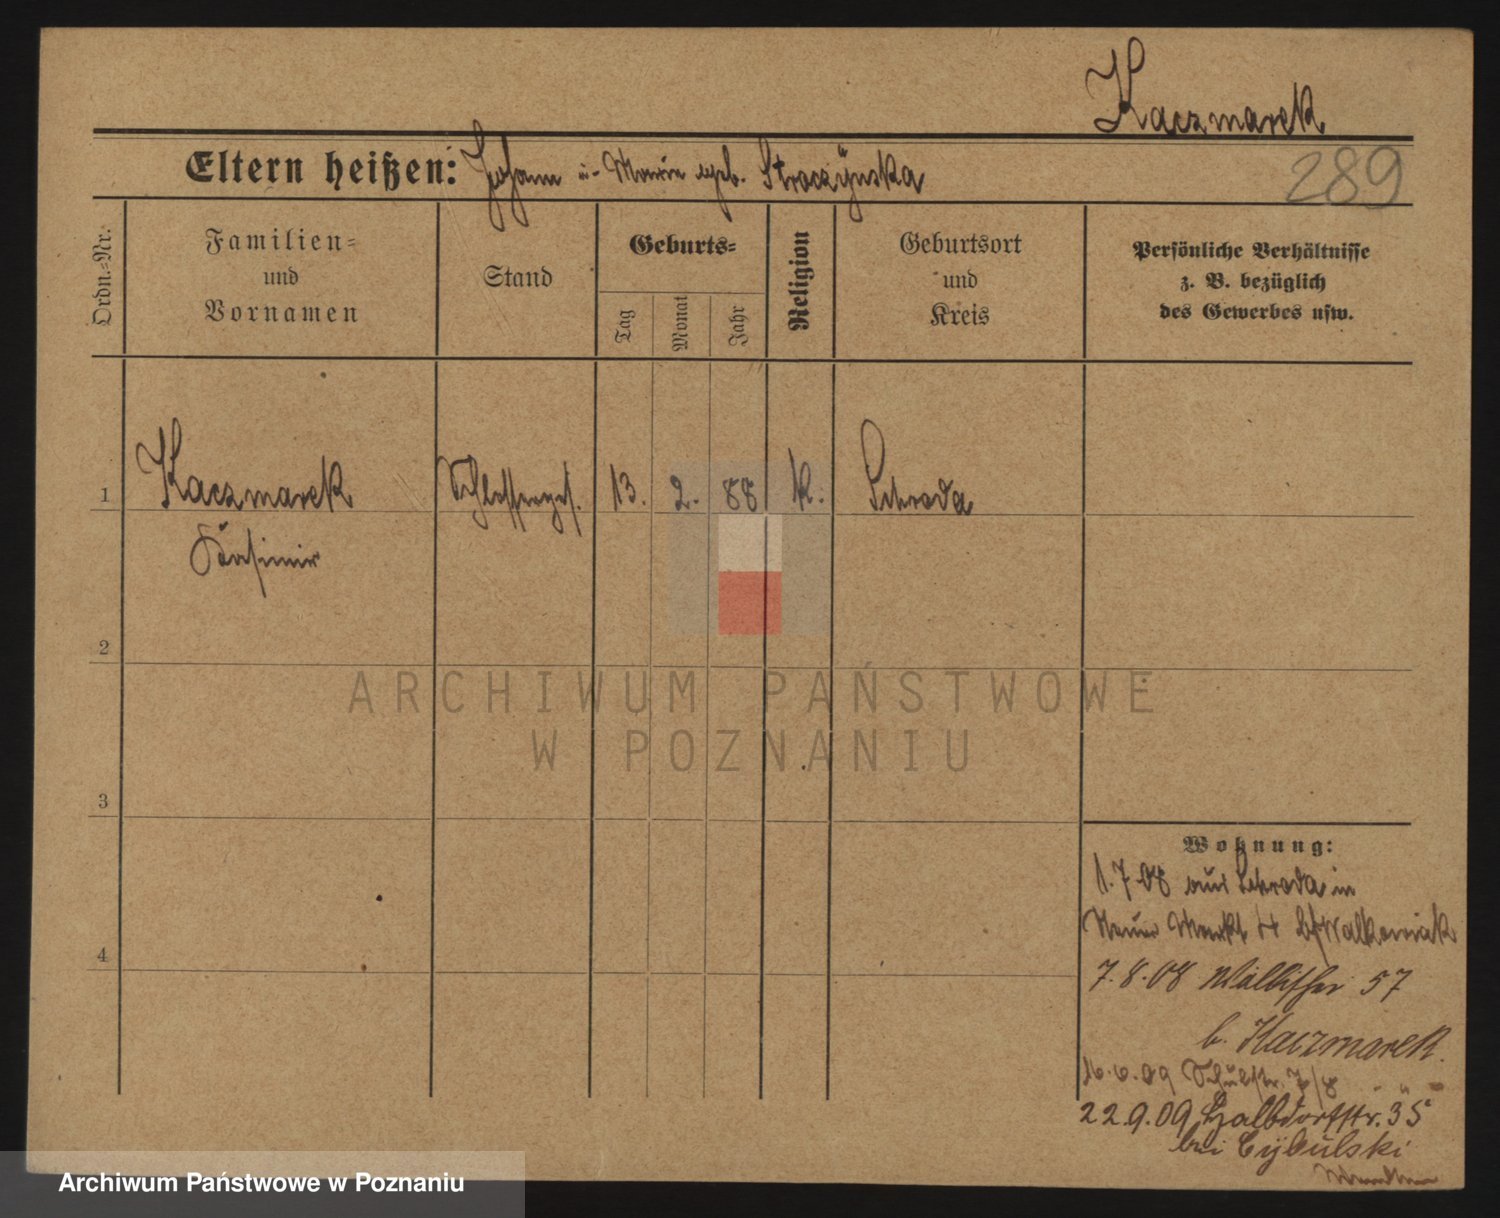 Kaczmarek
289
Eltern heißen: Johann u. Marie geb. Straczÿnska
Ordn.-Nr.
Familien-
und
Vornamen
Stand
Geburts-
Tag
Monat
Jahr
Religion
Geburtsort
und
Kreis
Persönliche Verhältnisse
z. B. bezüglich
des Gewerbes usw.
1 Kaczmarek Schlosserges. 13. 2. 88 k. Schroda
Kasimir
2
ARCHIWUM PAŃSTWOWE
W POZNANIU
3
Wohnung:
1.7.08 aus Schroda in
Neuer Markt b/Walkowiak
4
7.8.08 Wallischei 57
b. Kaczmarek.
16.6.09 Schulstr. 7/8
22.9.09 Halbdorfstr. 35
bei Cÿbulski
Archiwum Państwowe w Poznaniu